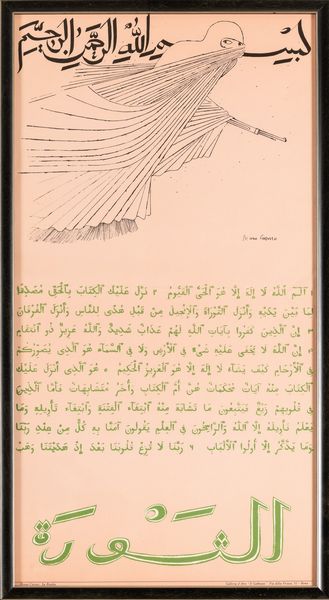 بسم الله الرحمن الرحيم
١ الم الله لا إله إلا هو الحي القيوم ٢ نزل عليك الكتاب بالحق مصدقا
لما بين يديه وأنزل التوراة والإنجيل من قبل هدى للناس وأنزل الفرقان
٣ إن الذين كفروا بآيات الله لهم عذاب شديد والله عزيز ذو انتقام
٤ إن الله لا يخفى عليه شيء في الأرض ولا في السماء هو الذي يصوركم
في الأرحام كيف يشاء لا إله إلا هو العزيز الحكيم ٥ هو الذي أنزل عليك
الكتاب منه آيات محكمات هن أم الكتاب وأخر متشابهات فأما الذين
في قلوبهم زيغ فيتبعون ما تشابه منه ابتغاء الفتنة وابتغاء تأويله وما
يعلم تأويله إلا الله والراسخون في العلم يقولون آمنا به كل من عند ربنا
وما يذكر إلا أولوا الألباب ٦ ربنا لا تزغ قلوبنا بعد إذ هديتنا وهب
الثورة
Galleria d'Arte - Il Gabbiano - Via della Frezza, 51 - Roma